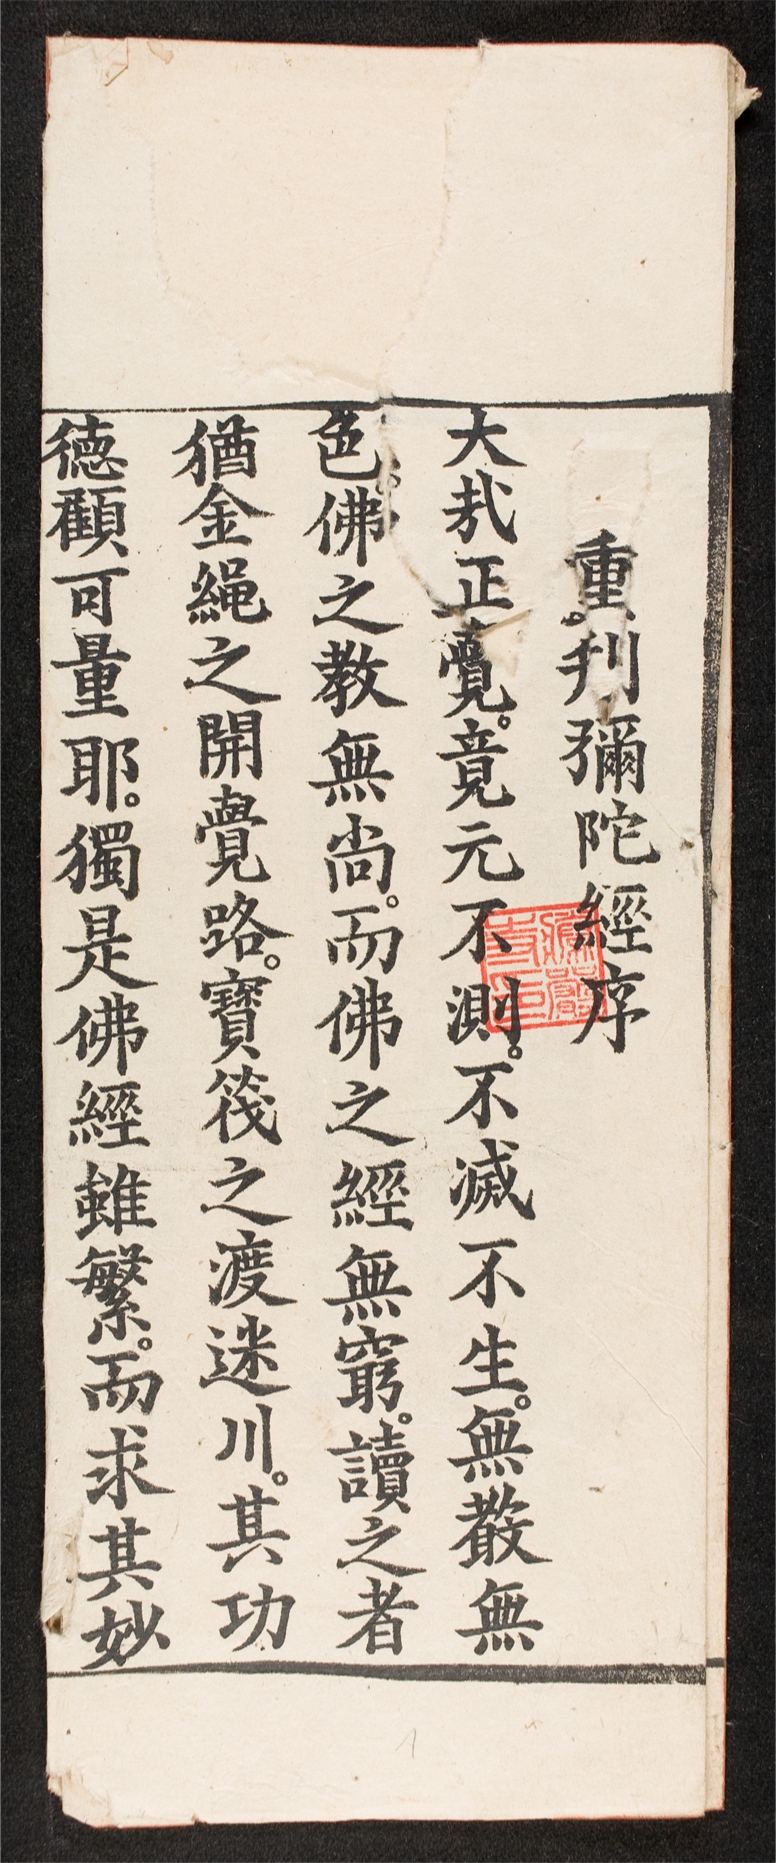 重刋彌陀經序
大㢤正覺。竟元不測。不滅不生。無聲無
色。佛之教無尚。而佛之經無窮。讀之者
猶金繩之開覺路。寶筏之渡迷川。其功
德顧可量耶。獨是佛經雖繁。而求其妙